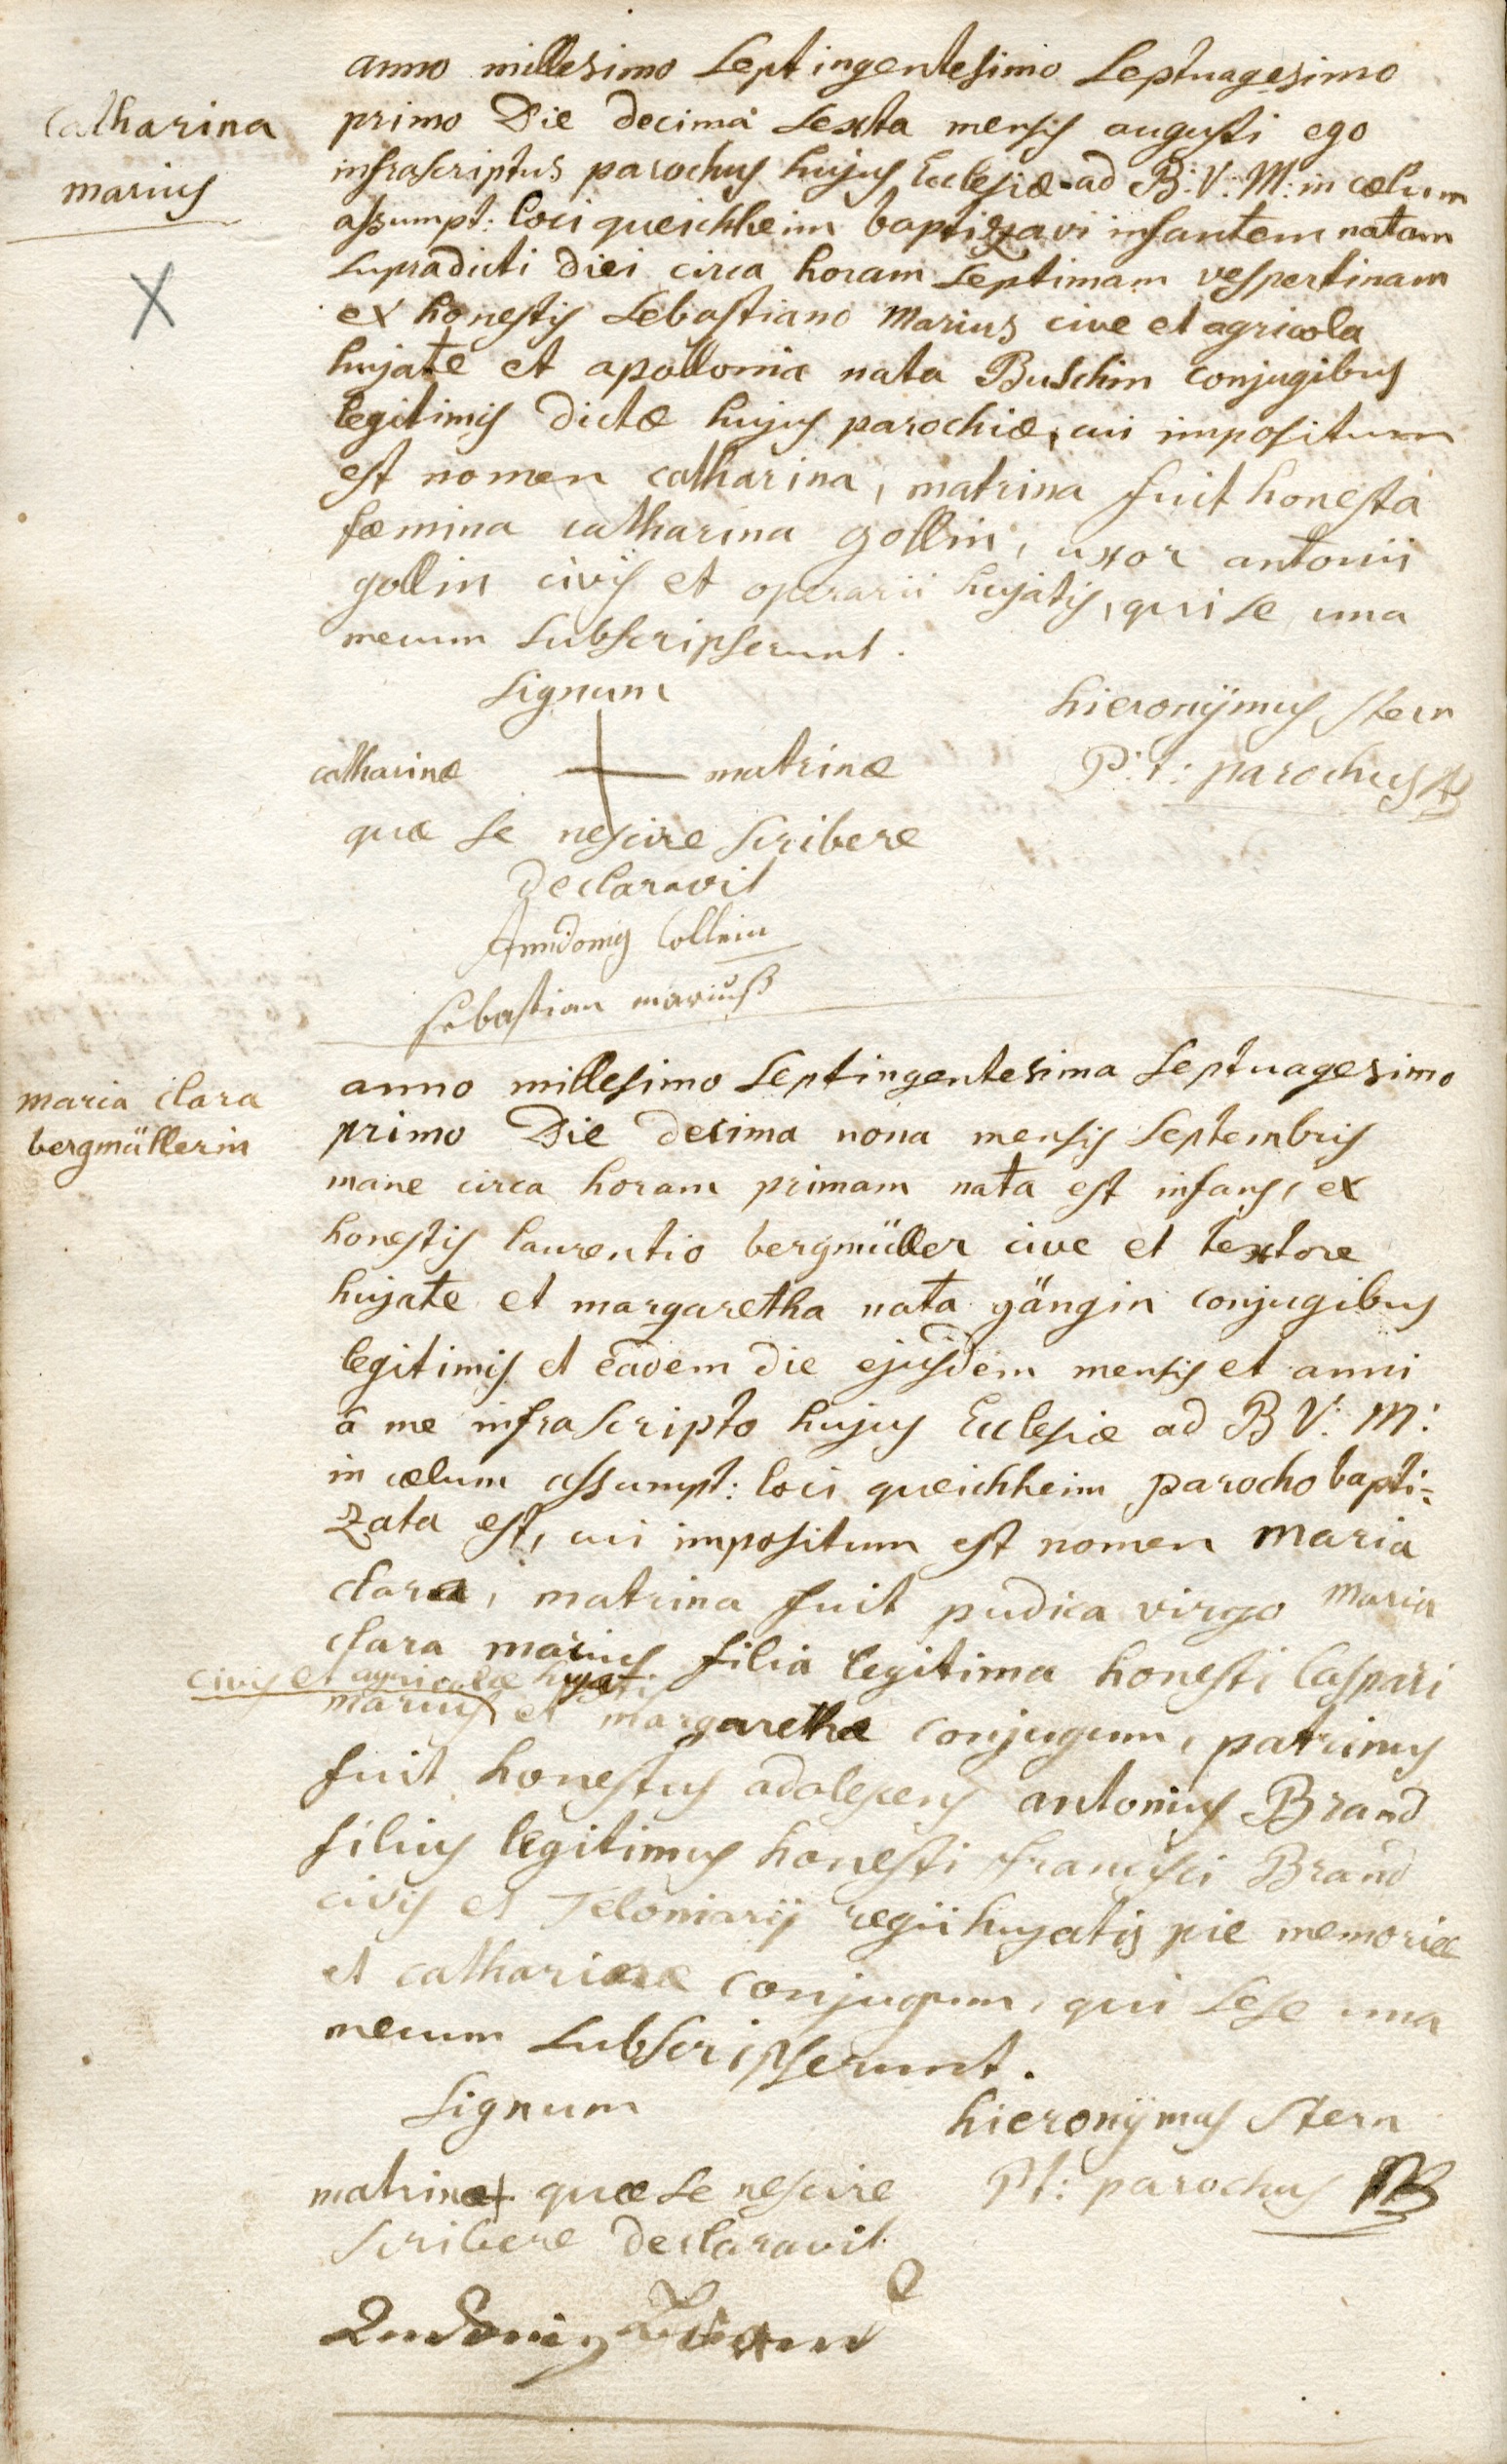 catharina
marius
X
anno millesimo septingentesimo septuagesimo
primo Die decima sexta mensis augusti ego
infrascriptus parochus hujus Ecclesiæ ad B: V: M: in cælum
assumpt: loci queichheim baptizavi infantem natam
supradicti diei circa horam septimam vespertinam
ex honestis sebastiano Marius cive et agricola
hujate et apollonia nata Buschin conjugibus
legitimis dictæ hujus parochiæ, cui impositum
est nomen catharina, matrina fuit honesta
fœmina catharina gollin, uxor antonii
gollin civis et operarii hujatis, qui se una
mecum subscripserunt.
signum
hieronÿmus stern
catharinæ + matrinæ
P: t: parochus
quæ se nescire scribere
declaravit
Anndonig Collein
sebastian mariuß
maria clara
bergmüllerin
anno millesimo septingentesima septuagesimo
primo Die decima nona mensis septembris
mane circa horam primam nata est infans, ex
honestis laurentio bergmüller cive et textore
hujate et margaretha nata gängin conjugibus
legitimis et eadem die ejusdem mensis et anni
â me infrascripto hujus Ecclesiæ ad B V: M:
in cælum assumpt: loci queichheim parocho bapti=
zata est, cui impositum est nomen Maria
clara, matrina fuit pudica virgo Maria
clara marius filia legitima honesti Caspari
civis et agricolæ hujatis
marius et margarethæ conjugum, patrinus
fuit honestus adolescens antonius Brand
filius legitimus honesti francisci Brand
civis et Teloniarij regii hujatis pie memoriæ
et catharinæ conjugum, qui sese una
mecum subscripserunt.
signum
hieronÿmus stern
matrinæ + quæ se nescire
Pt: parochus
scribere declaravit